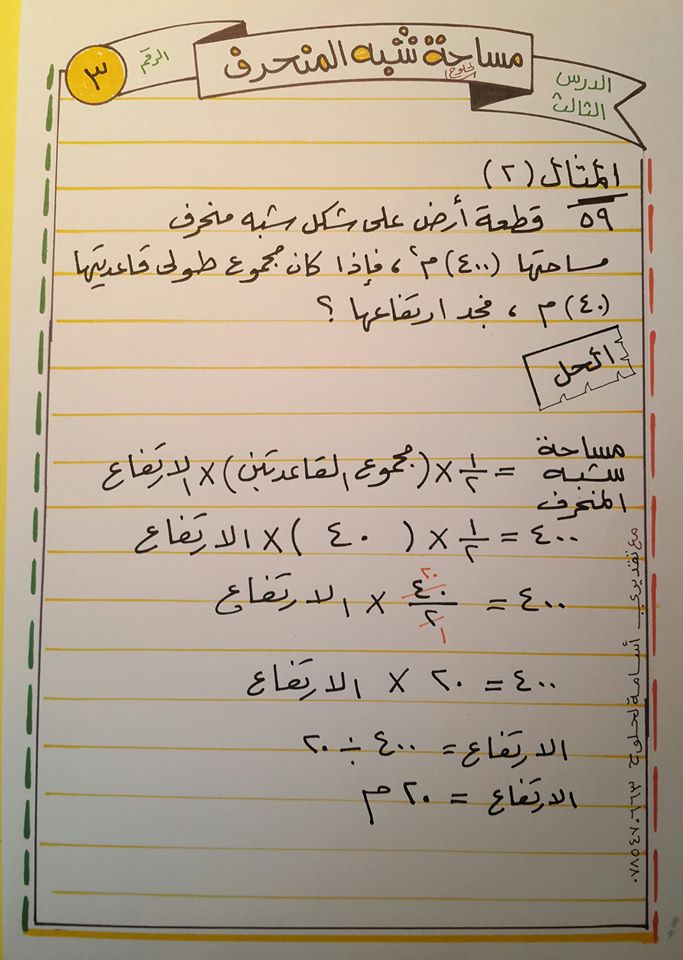 الدرس الثالث
مساحة شبه المنحرف
الرقم
٣
المثال (٢)
٥٩ قطعة أرض على شكل شبه منحرف
مساحتها (٤٠٠) م٢ ، فإذا كان مجموع طولى قاعديتها
(٤٠) م ، فجد ارتفاعها ؟
الحل
مساحة شبه المنحرف = ١/٢ × (مجموع القاعدتين) × الارتفاع
٤٠٠ = ١/٢ × ( ٤٠ ) × الارتفاع
٤٠٠ = ٤٠/٢ × الارتفاع
٢٠
١
٤٠٠ = ٢٠ × الارتفاع
الارتفاع = ٤٠٠ ÷ ٢٠
الارتفاع = ٢٠ م
مع تقديري أسامة لحلوح ٠٧٨٥٤٧٠٦٦٣